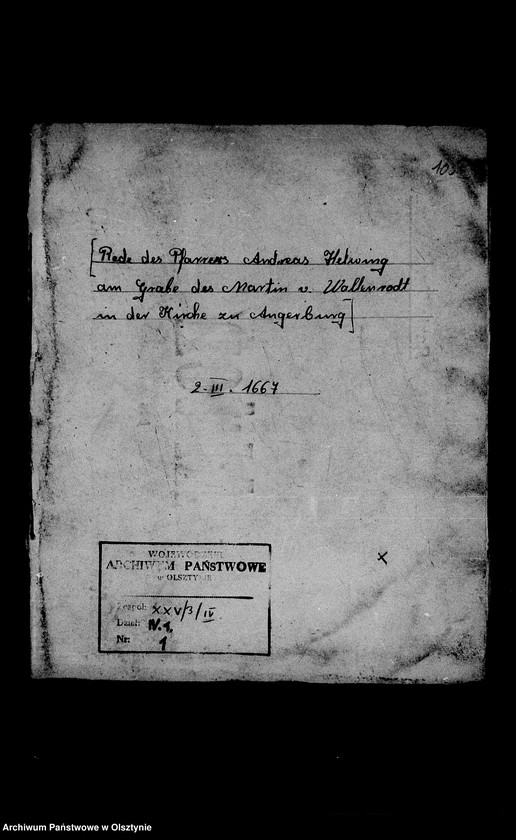 103
[Rede des Pfarrers Andreas Helwing
am Grabe des Martin v. Wallenrodt
in der Kirche zu Angerburg]
2.III.1667
x
WOJEWÓDZKIE
ARCHIWUM PAŃSTWOWE
w OLSZTYNIE
Zespół: XXV/3/IV
Dział: IV.1.
Nr: 1
Archiwum Państwowe w Olsztynie